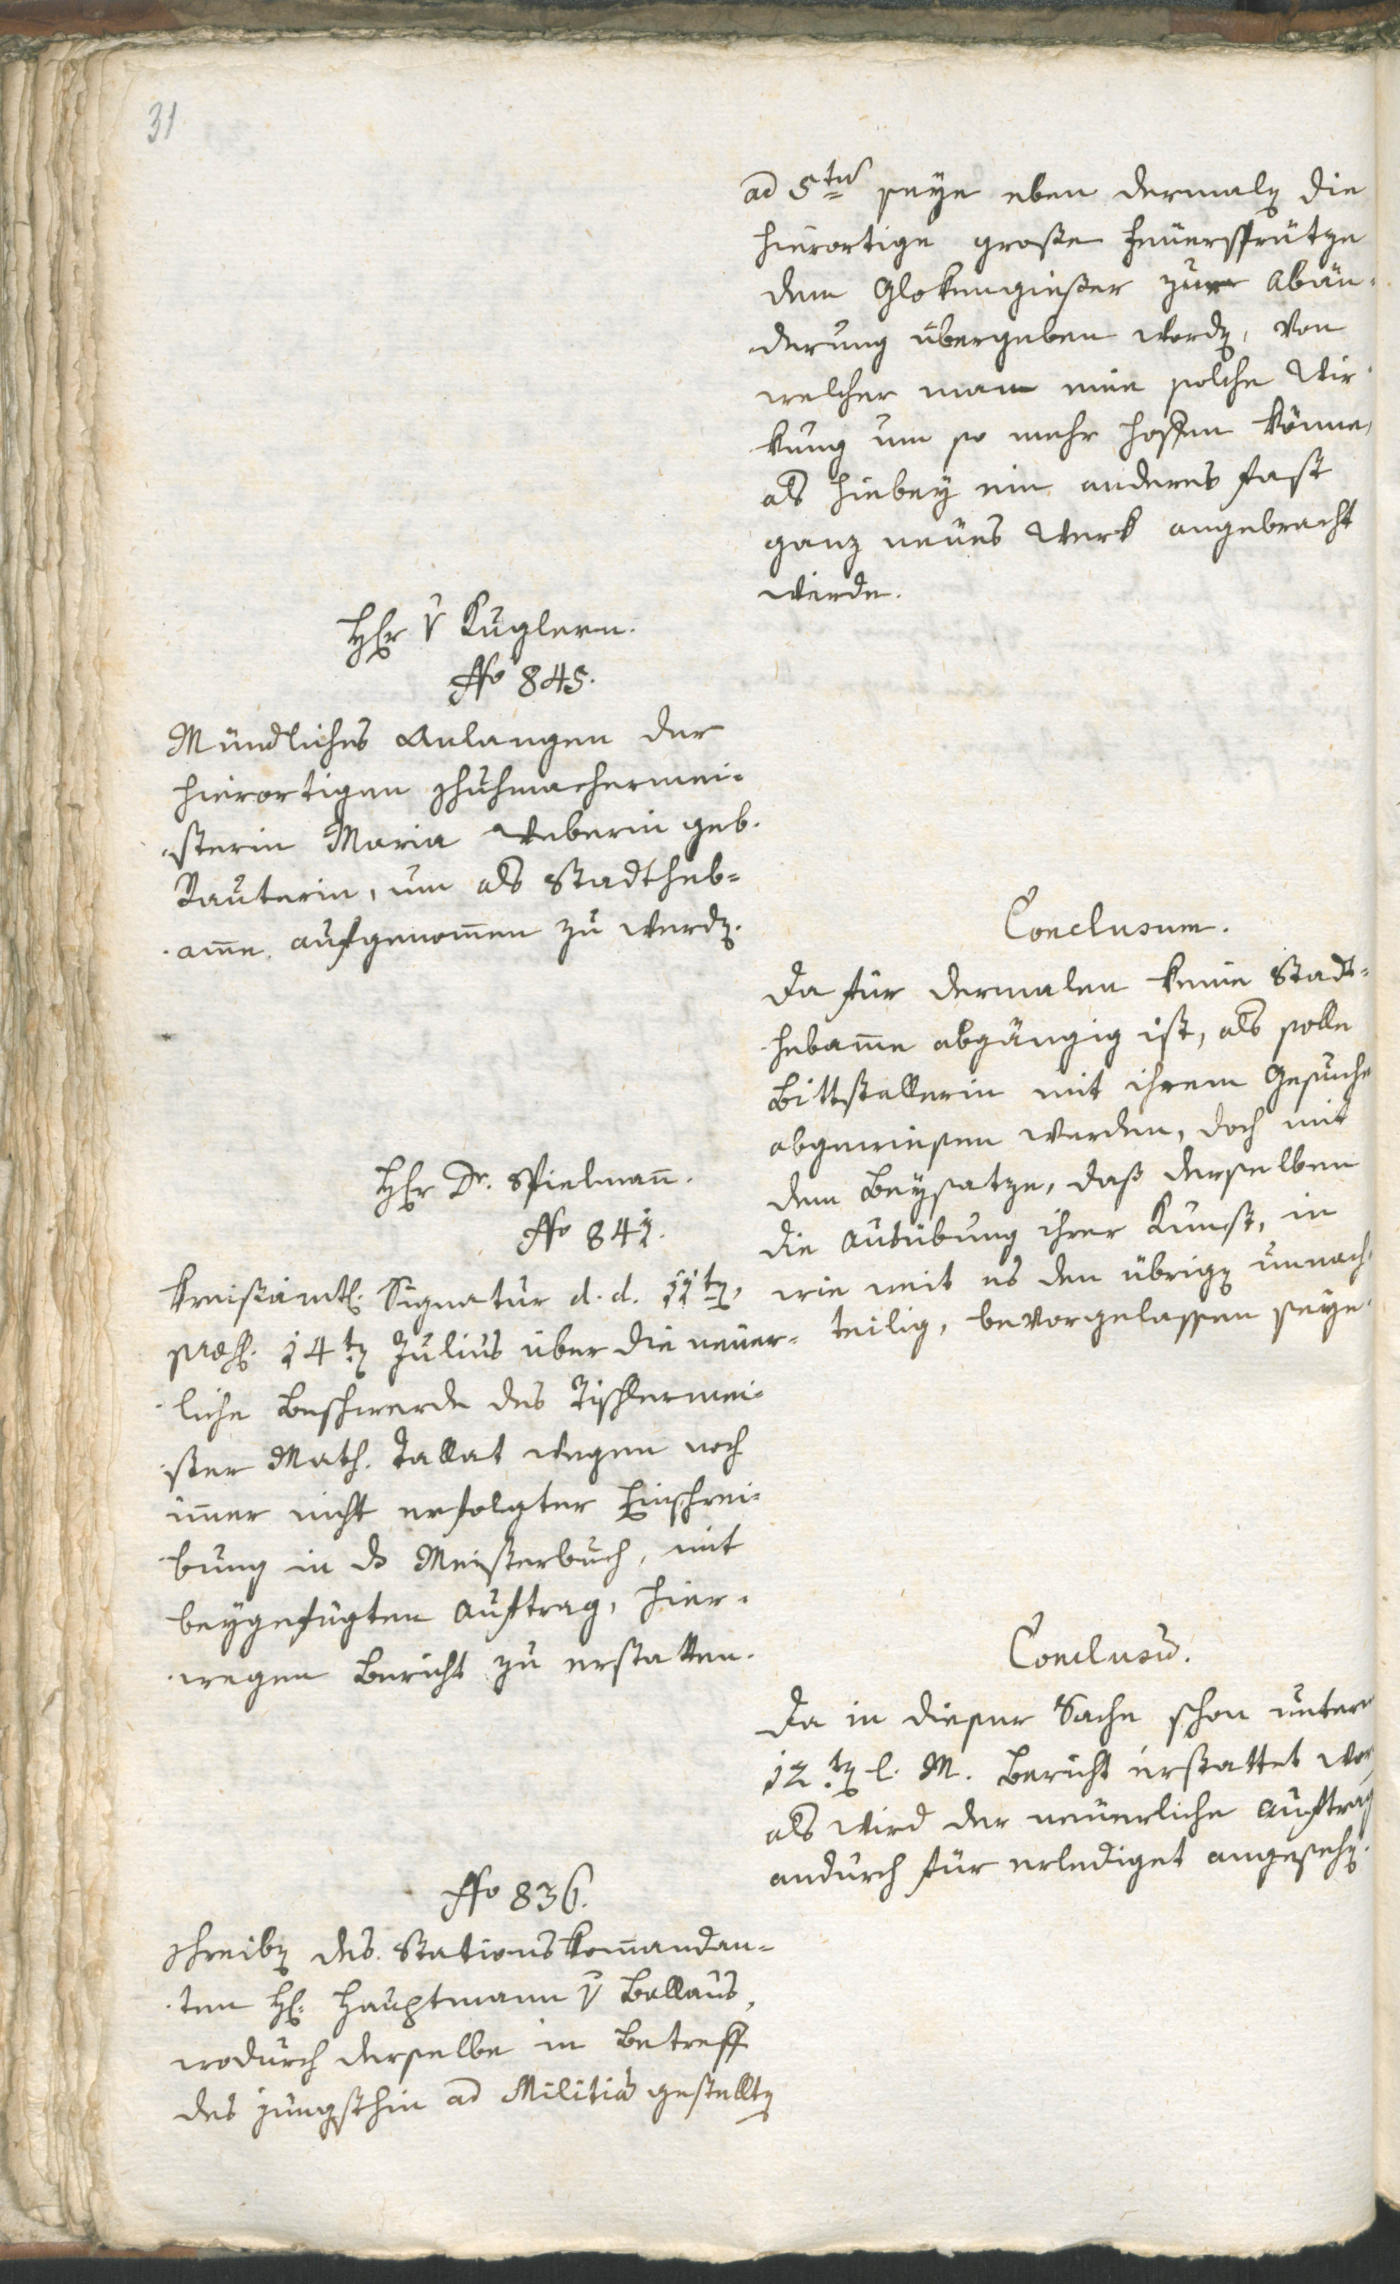 31
ad 5tū seye eben dermalen die
hierortige große Feuersprütze
dem Glokengießer zur Abän-
derung übergeben worden, von
welcher man eine solche Wir-
kung um so mehr hoffen könne,
als hiebey ein anderes fast
ganz neues Werk angebracht
wirde.
Herr v Kuglern.
No 845.
Mündliches Anlangen der
hierortigen Schuhmachermei-
sterin Maria Weberin geb.
Rauterin, um als Stadtheb-
am̄e aufgenom̄en zu werden.
Conclusum.
Da für dermalen keine Stadt-
hebam̄e abgängig ist, als solle
Bittstellerin mit ihrem Gesuche
abgewiesen werden, doch mit
dem Beysatze, daß derselben
die Ausübung ihrer Kunst, in
wie weit es den übrigen unnach-
teilig, bevorgelassen seye.
Herr Dr. Spielman̄.
No 841.
Kreisämtl. Signatur d. d. 11ten,
präs. 14ten Julius über die neuer-
liche Beschwerde des Tischlermei-
ster Math. Tallat wegen noch
im̄er nicht erfolgter Einschrei-
bung in das Meisterbuch, mit
beygefügten Auftrag, hier-
wegen Bericht zu erstatten.
Conclusū.
Da in dieser Sache schon unterm
12ten l. M. Bericht erstattet wor
als wird der neuerliche Auftrag
andurch für erlediget angesehen.
No 836.
Schreiben des Stationskom̄andan-
ten H. Hauptmann v Bellaus,
wodurch derselbe in Betreff
des jüngsthin ad Militiā gestellten